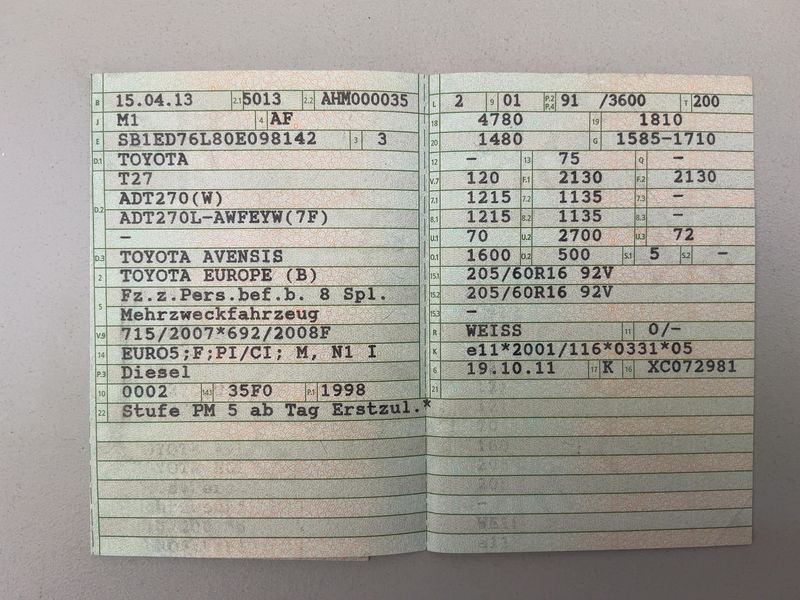 B 15.04.13 2.1 5013 2.2 AHM000035
J M1 4 AF
E SB1ED76L80E098142 3 3
D.1 TOYOTA
T27
D.2 ADT270(W)
ADT270L-AWFEYW(7F)
–
D.3 TOYOTA AVENSIS
2 TOYOTA EUROPE (B)
5 Fz.z.Pers.bef.b. 8 Spl.
Mehrzweckfahrzeug
V.9 715/2007*692/2008F
14 EURO5;F;PI/CI; M, N1 I
P.3 Diesel
10 0002 14.1 35F0 P.1 1998
22 Stufe PM 5 ab Tag Erstzul.*
L 2 9 01 P.2 P.4 91 /3600 T 200
18 4780 19 1810
20 1480 G 1585-1710
12 – 13 75 Q –
V.7 120 F.1 2130 F.2 2130
7.1 1215 7.2 1135 7.3 –
8.1 1215 8.2 1135 8.3 –
U.1 70 U.2 2700 U.3 72
O.1 1600 O.2 500 S.1 5 S.2 –
15.1 205/60R16 92V
15.2 205/60R16 92V
15.3 –
R WEISS 11 0/-
K e11*2001/116*0331*05
6 19.10.11 17 K 16 XC072981
21